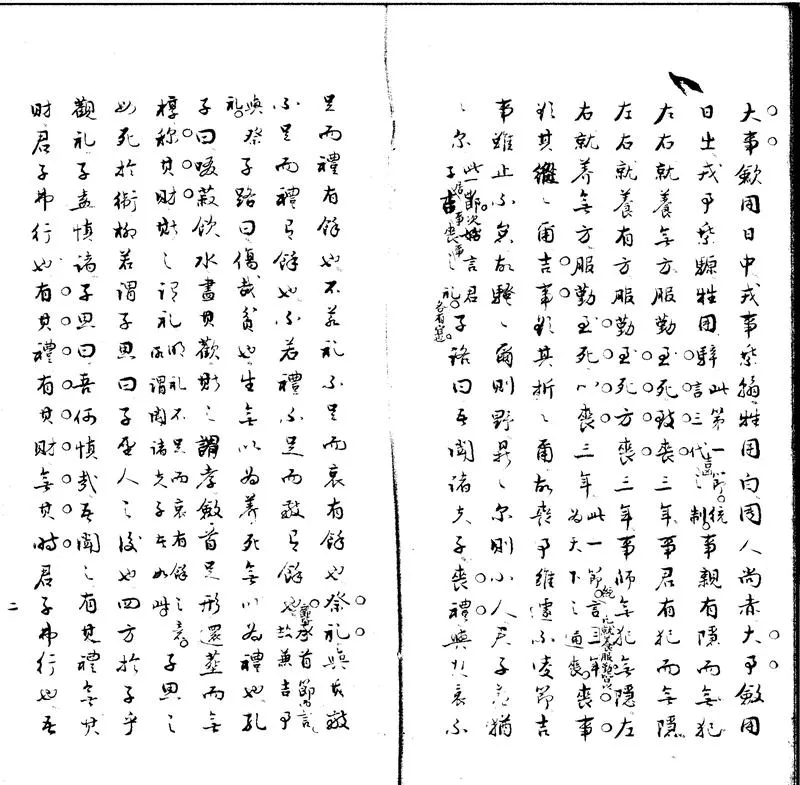 大事歛用日中戎事乘翰牲用白周人尚赤大事斂用
日出戎事乘騵牲用騂此第一節統言三代之制事親有隱而無犯
左右就養無方服勤至死致喪三年事君有犯而無隱
左右就養有方服勤至死方喪三年事師無犯無隱左
右就养無方服勤至死心喪三年此一節言三年為天下之通喪喪事
欲其縱〻爾吉事欲其折〻爾故喪事雖遽不凌節吉
事雖止不怠故騷〻爾則野鼎〻尔則小人君子蓋猶
〻尔此一節次言君子居吉事喪事之礼各有宜子路曰吾聞諸夫子喪禮與其哀不
足而禮有餘也不若礼不足而哀有餘也祭礼與其敬
不足而禮有餘也不若禮不足而敬有餘也承首節而言故兼吉事
與祭礼子路曰傷哉貧也生無以為養死無以為禮也孔
子曰啜菽飲水盡其歡斯之謂孝斂首足形還葬而無
椁稱其財斯之謂礼明礼不足而哀有餘之意所謂聞諸夫子其如此子思之
母死於衛柳若謂子思曰子聖人之後也四方於子乎
觀礼子盖慎諸子思曰吾何慎哉吾聞之有其禮無其
財君子弗行也有其禮有其財無其時君子弗行也吾
二